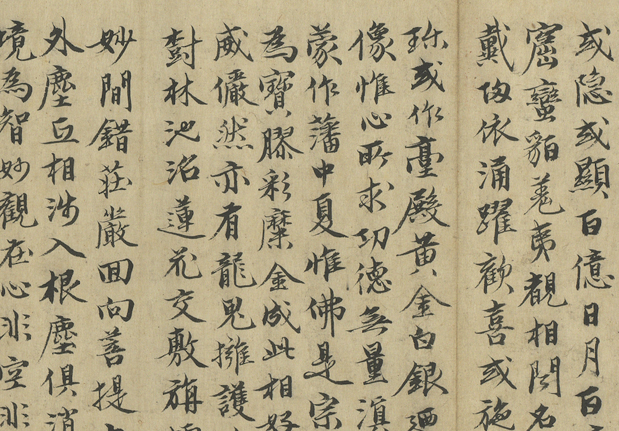 或隐或顯百億日月百
窟蠻貊羗夷覩相聞名
戴皈依涌躍歡喜或施
珎或作臺殿黄金白銀迺
像惟心所求功德無量滇
蒙作藩中夏惟佛是宗
為寳膠彩糜金成此相好
威儼然亦有龍鬼擁護
對林池沼蓮花交敷旃
妙間錯莊嚴回向菩提
外塵互相涉入根塵俱消
境為智妙觀在心非空非